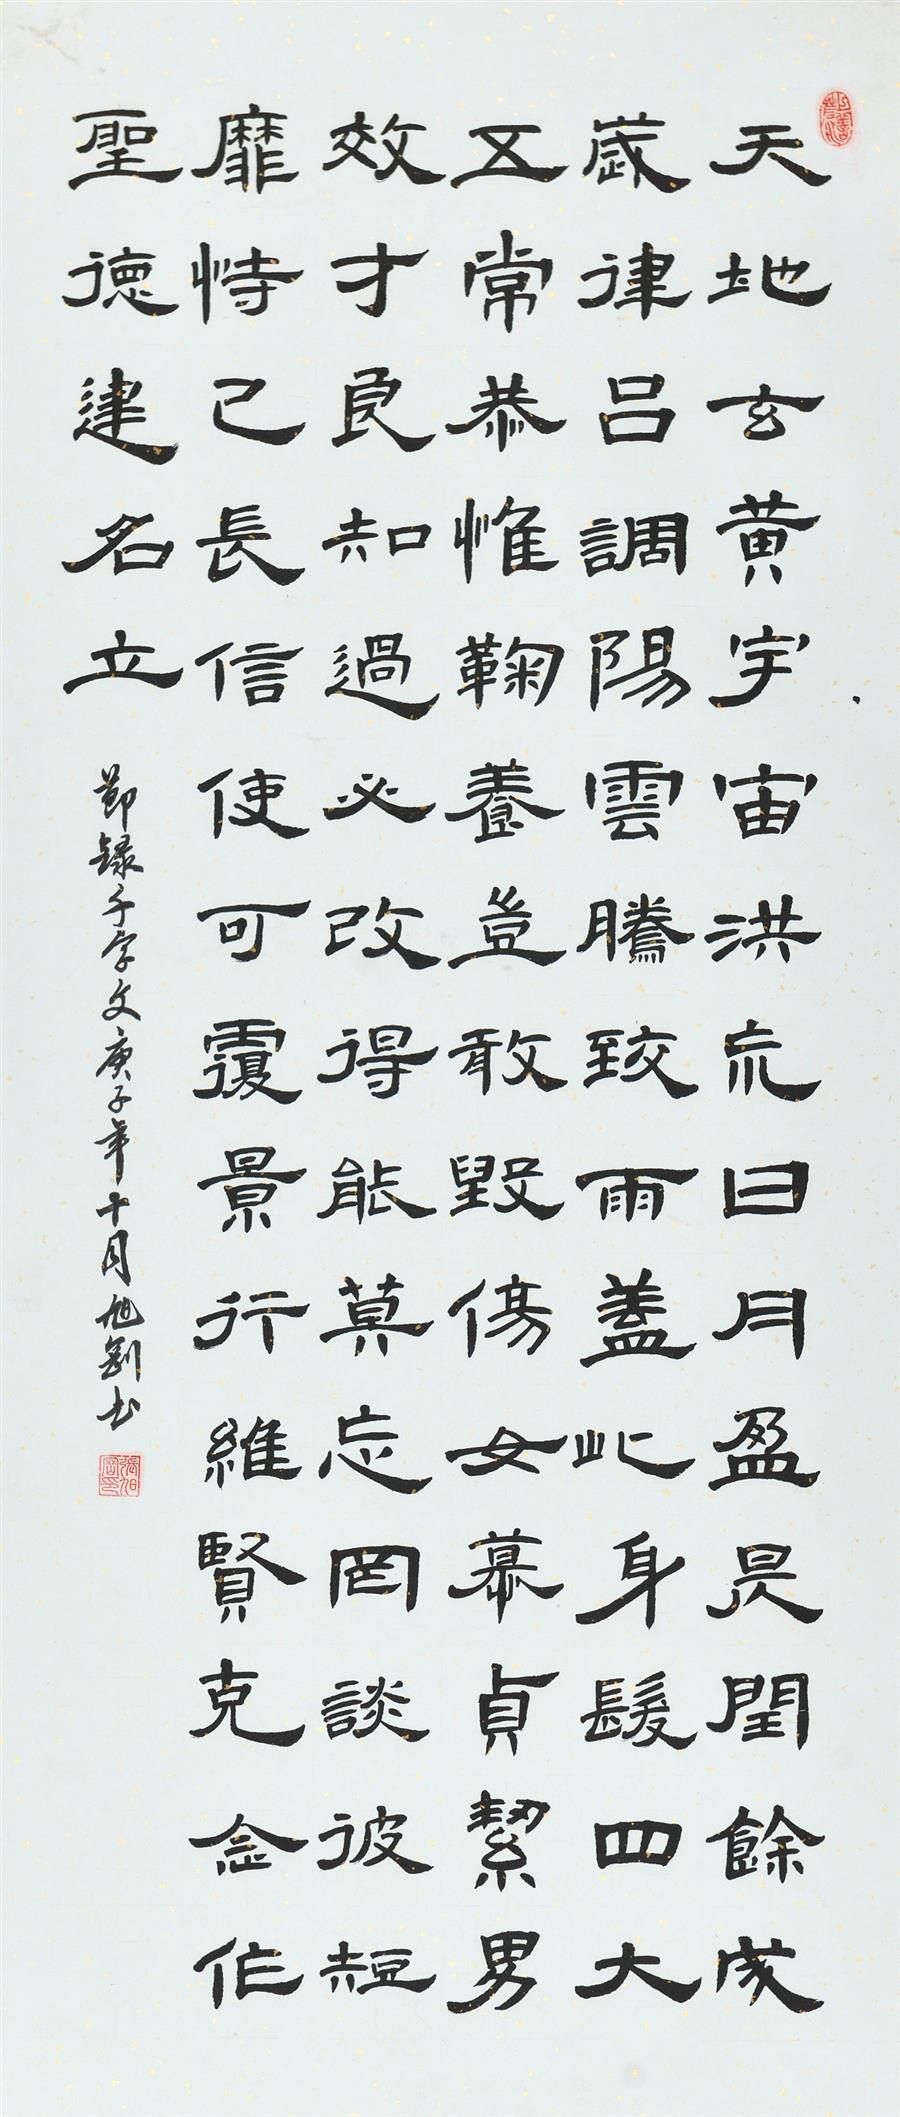 天地玄黄宇宙洪荒日月盈昃閏餘成
歲律吕調陽雲騰致雨蓋此身髮四大
五常恭惟鞠養豈敢毀傷女慕貞絜男
效才良知過必改得能莫忘罔談彼短
靡恃己長信使可覆景行維賢克念作
聖德建名立
節録千字文庚子年十月旭剛書